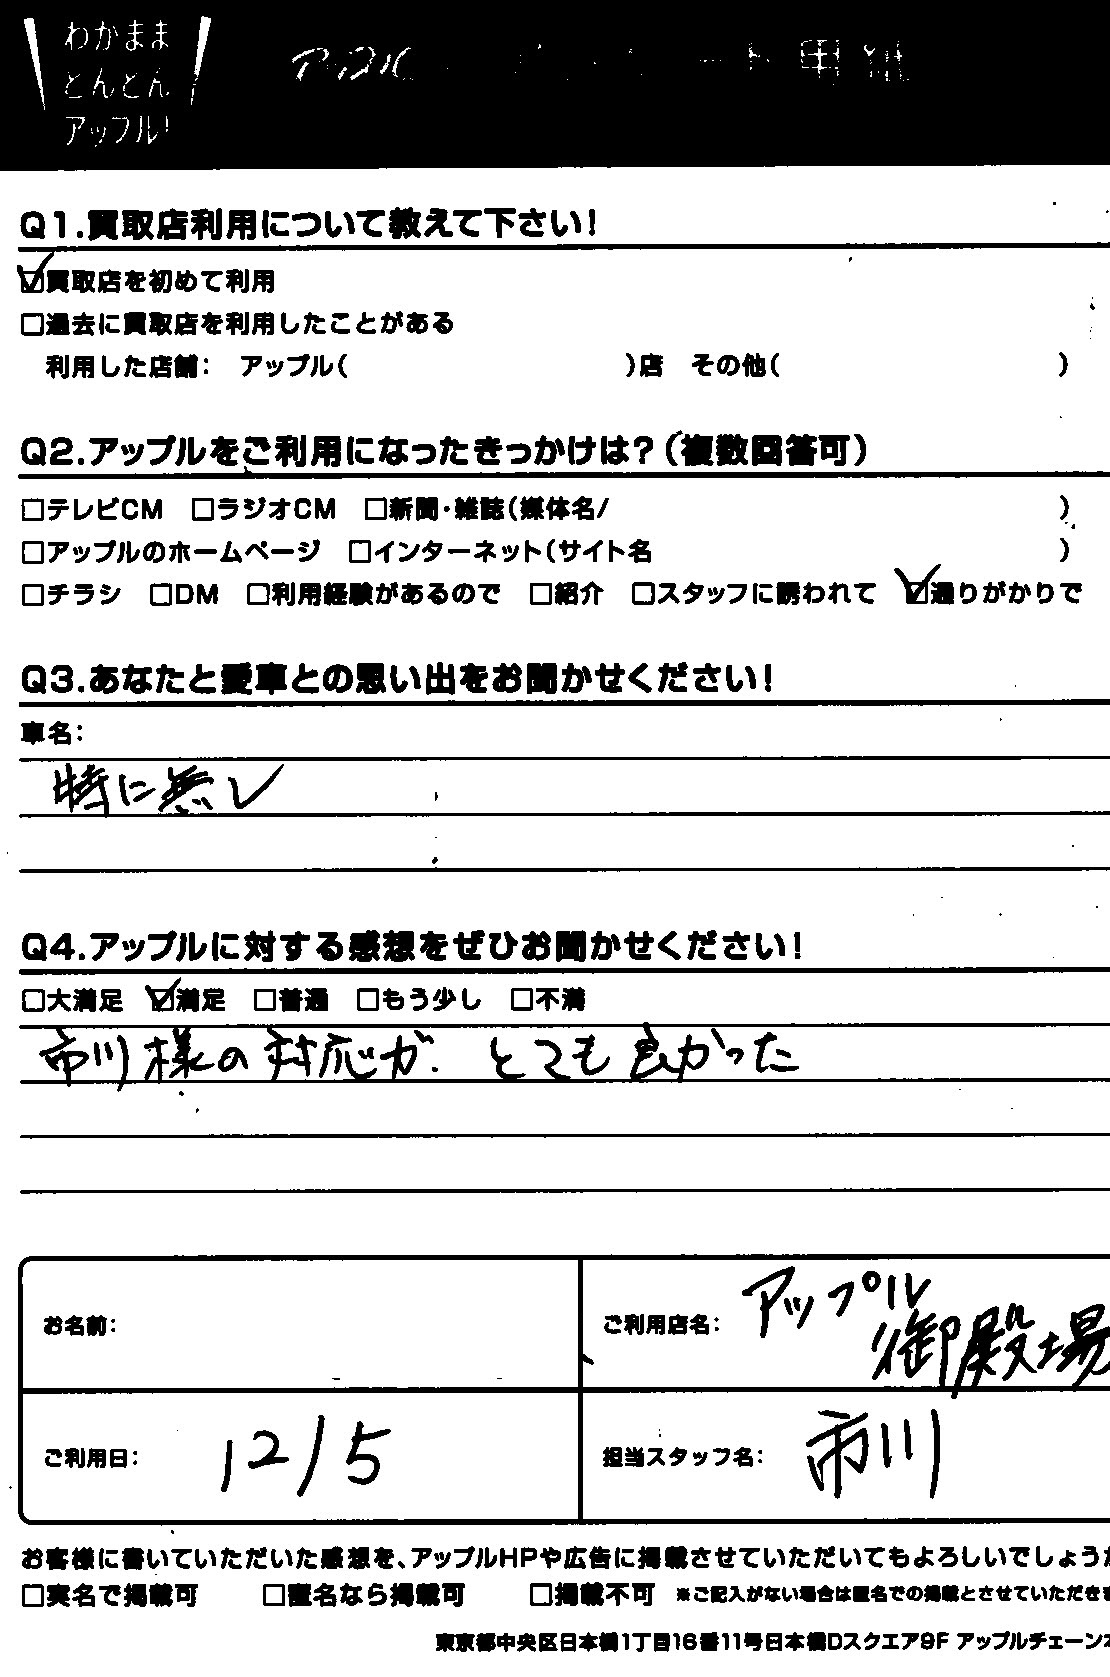 わがまま
どんどん
アップル!
アップル アンケート用紙
Q1.買取店利用について教えて下さい!
☑買取店を初めて利用
□過去に買取店を利用したことがある
利用した店舗: アップル( )店 その他( )
Q2.アップルをご利用になったきっかけは?(複数回答可)
□テレビCM □ラジオCM □新聞・雑誌(媒体名/ )
□アップルのホームページ □インターネット(サイト名 )
□チラシ □DM □利用経験があるので □紹介 □スタッフに誘われて ☑通りがかりで
Q3.あなたと愛車との思い出をお聞かせください!
車名:
特に無し
Q4.アップルに対する感想をぜひお聞かせください!
□大満足 ☑満足 □普通 □もう少し □不満
市川様の対応が、とても良かった
お名前:
ご利用店名: アップル
御殿場
ご利用日: 12/5
担当スタッフ名: 市川
お客様に書いていただいた感想を、アップルHPや広告に掲載させていただいてもよろしいでしょうか
□実名で掲載可 □匿名なら掲載可 □掲載不可 ※ご記入がない場合は匿名での掲載とさせていただきま
東京都中央区日本橋1丁目16番11号日本橋Dスクエア9F アップルチェーン本